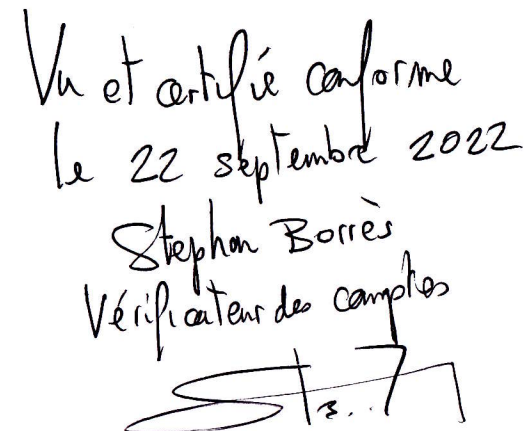 Vu et certifié conforme
le 22 septembre 2022
Stephan Borrès
Vérificateur des comptes